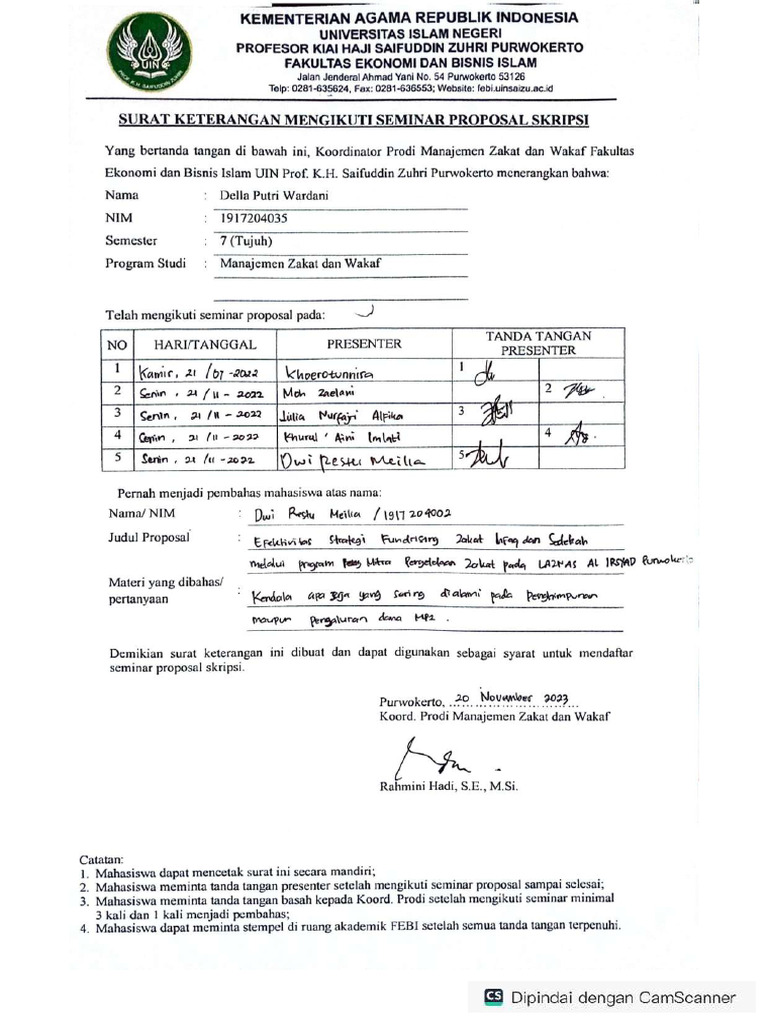 KEMENTERIAN AGAMA REPUBLIK INDONESIA
UNIVERSITAS ISLAM NEGERI
PROFESOR KIAI HAJI SAIFUDDIN ZUHRI PURWOKERTO
FAKULTAS EKONOMI DAN BISNIS ISLAM
Jalan Jenderal Ahmad Yani No. 54 Purwokerto 53126
Telp: 0281-635624, Fax: 0281-636553; Website: febi.uinsaizu.ac.id
UIN
SURAT KETERANGAN MENGIKUTI SEMINAR PROPOSAL SKRIPSI
Yang bertanda tangan di bawah ini, Koordinator Prodi Manajemen Zakat dan Wakaf Fakultas
Ekonomi dan Bisnis Islam UIN Prof. K.H. Saifuddin Zuhri Purwokerto menerangkan bahwa:
Nama : Della Putri Wardani
NIM : 1917204035
Semester : 7 (Tujuh)
Program Studi : Manajemen Zakat dan Wakaf
Telah mengikuti seminar proposal pada:
NO HARI/TANGGAL PRESENTER TANDA TANGAN PRESENTER
1 Kamis, 21/07-2022 Khoerotunnisa 1
2 Senin, 21/11-2022 Moh Zaelani 2
3 Senin, 21/11-2022 Julia Nurfajri Alfika 3
4 Senin, 21/11-2022 Khurul 'Aini Imlati 4
5 Senin, 21/11-2022 Dwi Restu Meilia 5
Pernah menjadi pembahas mahasiswa atas nama:
Nama/ NIM : Dwi Restu Meilia /1917204002
Judul Proposal : Efektivitas Strategi Fundrising Zakat Infaq dan Sedekah
melalui program Mitra Pengelolaan Zakat pada LAZNAS AL IRSYAD Purwokerto
Materi yang dibahas/
pertanyaan : Kendala apa saja yang sering dialami pada Penghimpunan
maupun Pengaluran dana MPZ.
Demikian surat keterangan ini dibuat dan dapat digunakan sebagai syarat untuk mendaftar
seminar proposal skripsi.
Purwokerto, 20 November 2023
Koord. Prodi Manajemen Zakat dan Wakaf
Rahmini Hadi, S.E., M.Si.
Catatan:
1. Mahasiswa dapat mencetak surat ini secara mandiri;
2. Mahasiswa meminta tanda tangan presenter setelah mengikuti seminar proposal sampai selesai;
3. Mahasiswa meminta tanda tangan basah kepada Koord. Prodi setelah mengikuti seminar minimal
3 kali dan 1 kali menjadi pembahas;
4. Mahasiswa dapat meminta stempel di ruang akademik FEBI setelah semua tanda tangan terpenuhi.
CS Dipindai dengan CamScanner